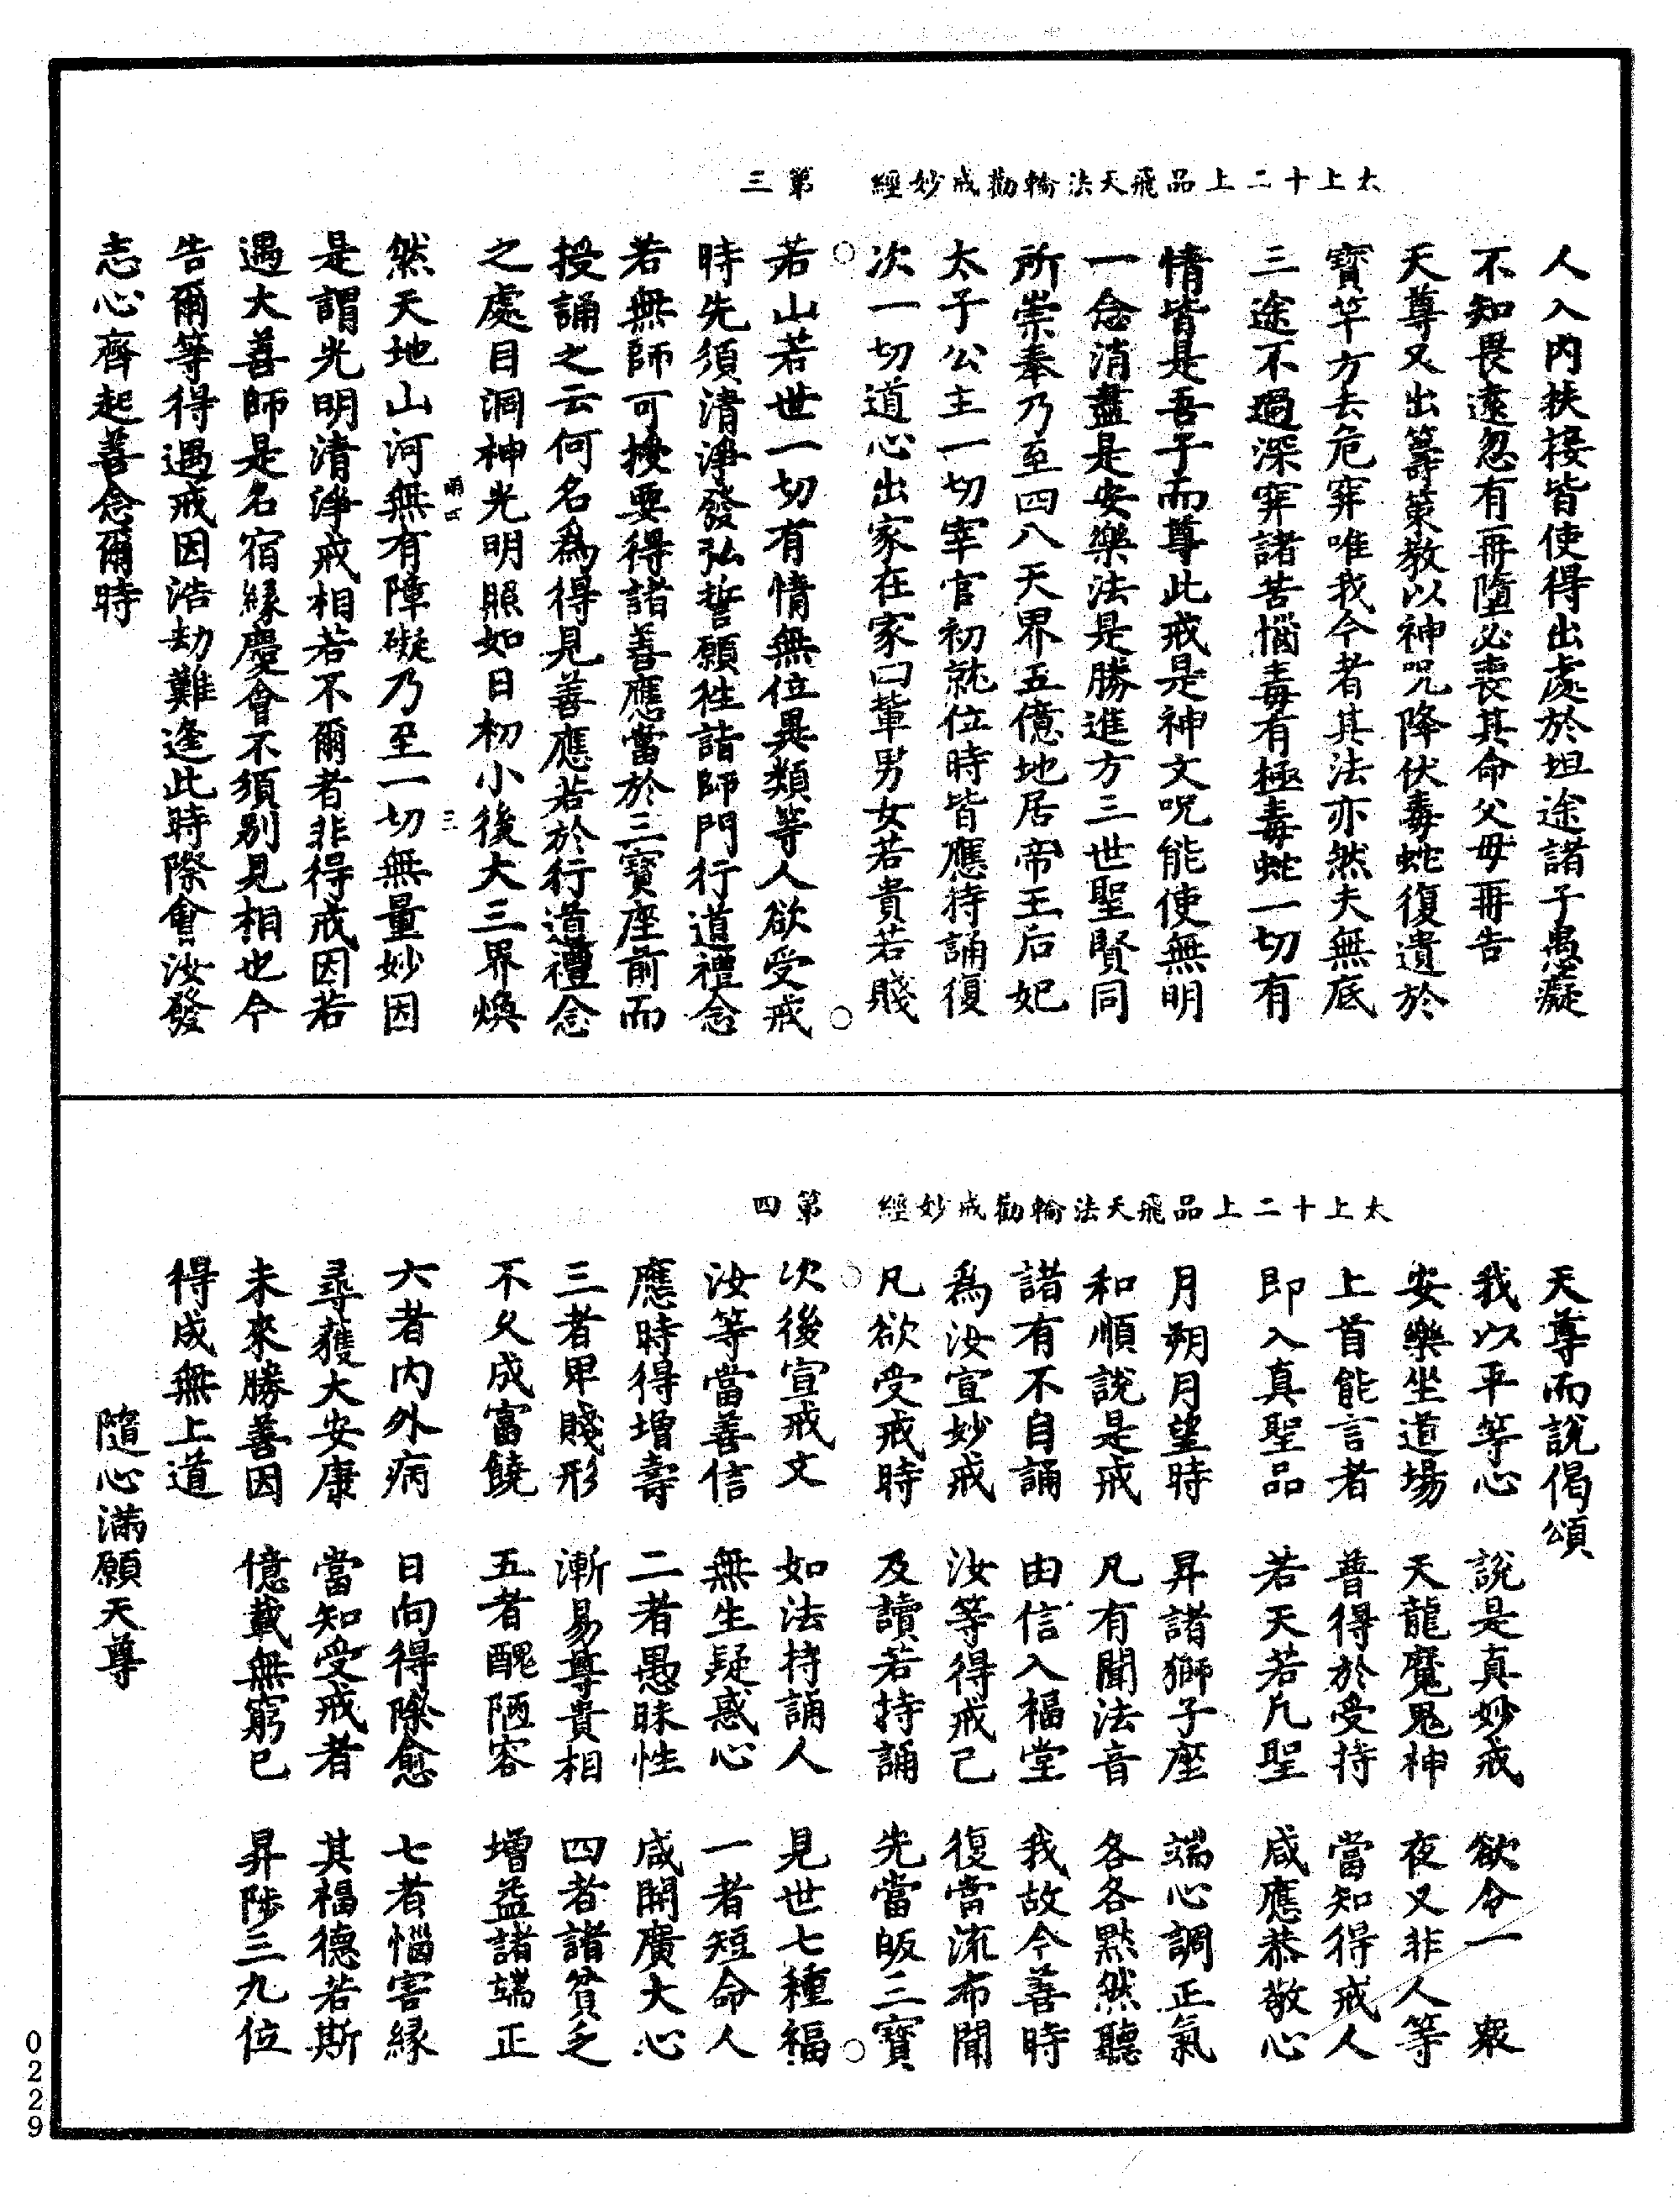 太上十二上品飛天法輪勸戒妙經　第三
人入内扶接皆使得出處於坦途諸子愚癡
不知畏遠忽有再墮必喪其命父母再告
天尊又出籌策教以神呪降伏毒蛇復遺於
寶竿方去危穽唯我今者其法亦然夫無底
三途不過深穽諸苦惱毒有極毒蛇一切有
情皆是吾子而尊此戒是神文呪能使無明
一念消盡是安樂法是勝進方三世聖賢同
所崇奉乃至四八天界五億地居帝王后妃
太子公主一切宰官初就位時皆應持誦復
次一切道心出家在家曰輩男女若貴若賤
若山若世一切有情無位異類等人欲受戒
時先須清淨發弘誓願往詣師門行道禮念
若無師可授要得諸善應當於三寶座前而
授誦之云何名為得見善應若於行道禮念
之處目洞神光明照如日初小後大三界煥
然天地山河無有障礙乃至一切無量妙因
是謂光明清淨戒相若不爾者非得戒因若
遇大善師是名宿緣慶會不須别見相也今
告爾等得遇戒因浩劫難逢此時際會汝發
志心齊起善念爾時
太上十二上品飛天法輪勸戒妙經　第四
天尊而說偈頌
我以平等心　說是真妙戒　欲令一　衆
安樂坐道場　天龍魔鬼神　夜叉非人等
上首能言者　普得於受持　當知得戒人
即入真聖品　若天若凡聖　咸應恭敬心
月朔月望時　昇諸獅子座　端心調正氣
和順說是戒　凡有聞法音　各各黙然聽
諸有不自誦　由信入福堂　我故今善時
為汝宣妙戒　汝等得戒已　復當流布聞
凡欲受戒時　及讀若持誦　先當皈三寶
次後宣戒文　如法持誦人　見世七種福
汝等當善信　無生疑惑心　一者短命人
應時得增壽　二者愚昧性　咸開廣大心
三者卑賤形　漸易尊貴相　四者諸貧乏
不久成富饒　五者醜陋容　增益諸端正
六者内外病　日向得除愈　七者惱害緣
尋獲大安康　當知受戒者　其福德若斯
未來勝善因　億載無窮已　昇陟三九位
得成無上道
隨心滿願天尊
0229